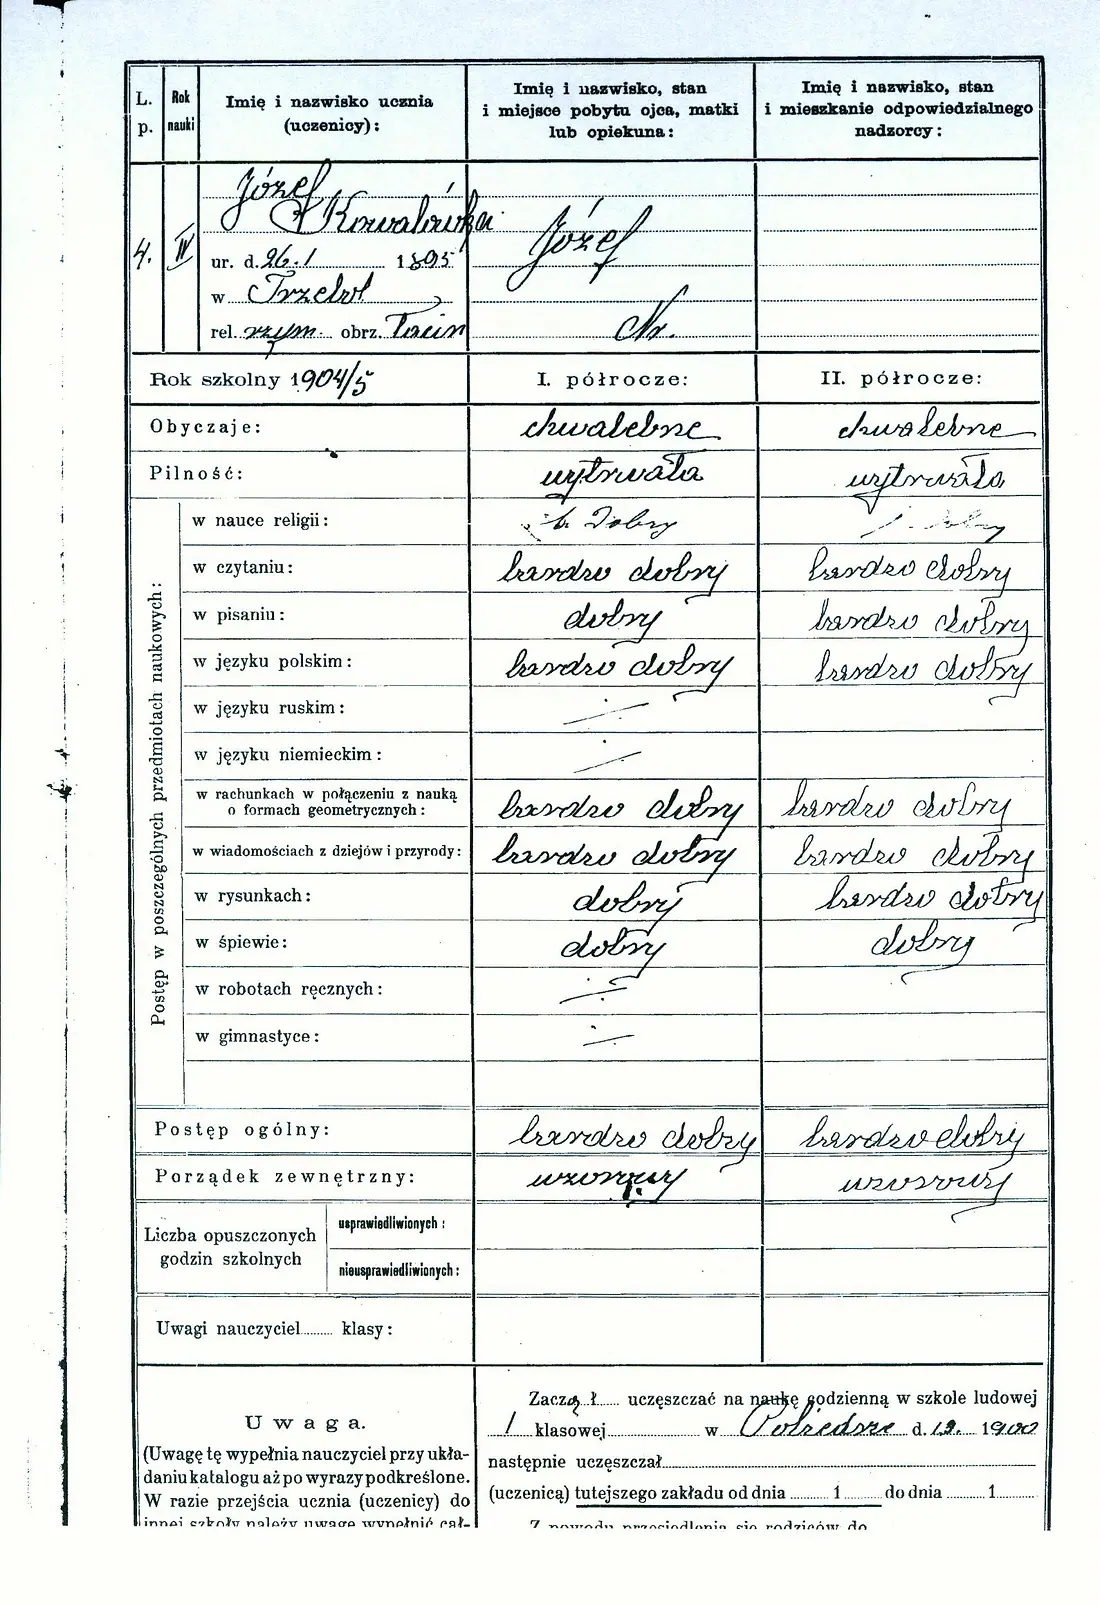 L. p.
Rok nauki
Imię i nazwisko ucznia
(uczenicy):
Imię i nazwisko, stan
i miejsce pobytu ojca, matki
lub opiekuna:
Imię i nazwisko, stan
i mieszkanie odpowiedzialnego
nadzorcy:
4.
IV
Józef
Kowalówka
ur. d. 26.1 1895
w Trzebol
rel. rzym. obrz. łacin
Józef
Nr.
Rok szkolny 1904/5
I. półrocze:
II. półrocze:
Obyczaje: chwalebne chwalebne
Pilność: wytrwała wytrwała
Postęp w poszczególnych przedmiotach naukowych:
w nauce religii: b. Dobry dobry
w czytaniu: bardzo dobry bardzo dobry
w pisaniu: dobry bardzo dobry
w języku polskim: bardzo dobry bardzo dobry
w języku ruskim:
w języku niemieckim:
w rachunkach w połączeniu z nauką
o formach geometrycznych: bardzo dobry bardzo dobry
w wiadomościach z dziejów i przyrody: bardzo dobry bardzo dobry
w rysunkach: dobry bardzo dobry
w śpiewie: dobry dobry
w robotach ręcznych:
w gimnastyce:
Postęp ogólny: bardzo dobry bardzo dobry
Porządek zewnętrzny: wzorowy wzorowy
Liczba opuszczonych
godzin szkolnych
usprawiedliwionych:
nieusprawiedliwionych:
Uwagi nauczyciel klasy:
Uwaga.
(Uwagę tę wypełnia nauczyciel przy ukła-
daniu katalogu aż po wyrazy podkreślone.
W razie przejścia ucznia (uczenicy) do
innej szkoły należy uwagę wypełnić cał-
Zaczął uczęszczać na naukę codzienną w szkole ludowej
1 klasowej w d. 1900
następnie uczęszczał
(uczenicą) tutejszego zakładu od dnia 1 do dnia 1
Z powodu przesiedlenia się rodziców do